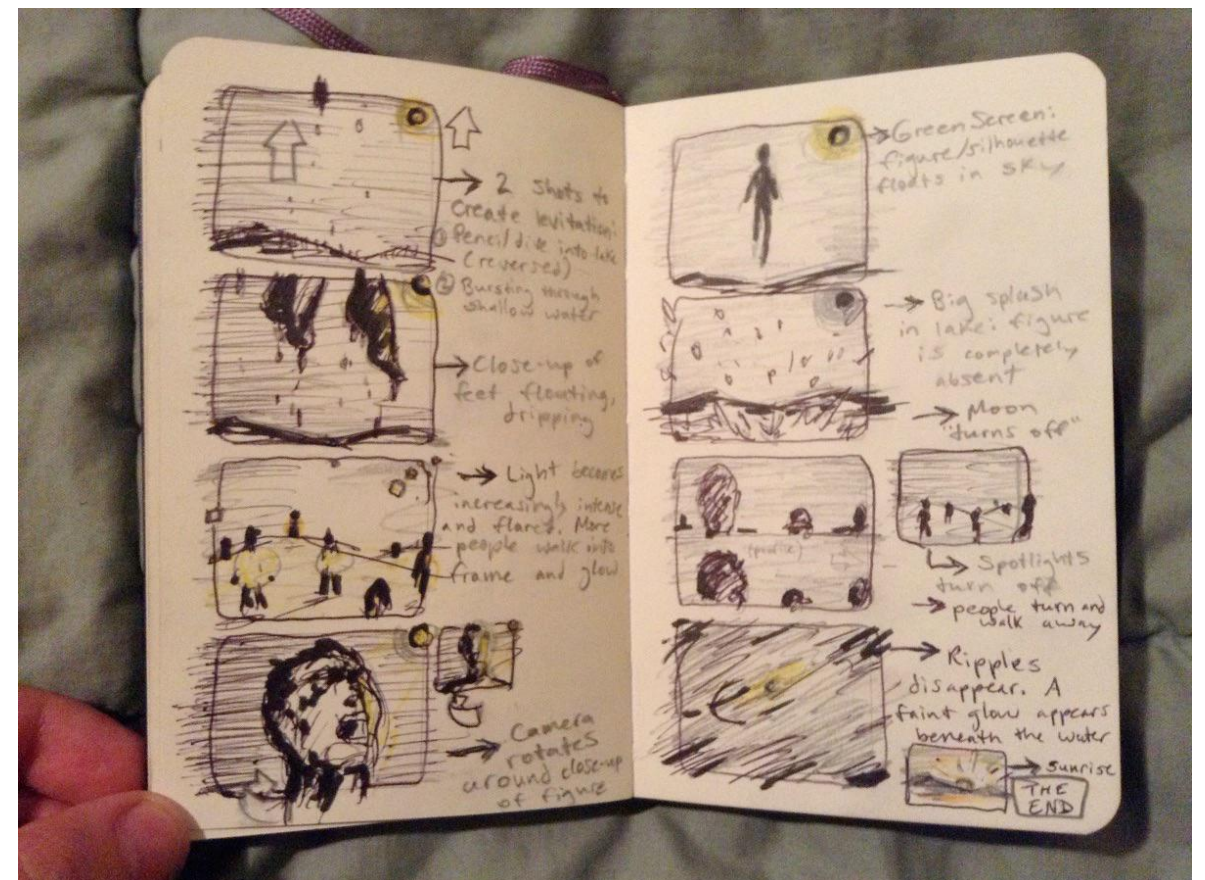 2 shots to
create levitation:
① Pencil dive into lake
(reversed)
② Bursting through
shallow water
Close-up of
feet floating,
dripping
Light becomes
increasingly intense
and flares. More
people walk into
frame and glow
Camera
rotates
around close-up
of figure
Green Screen:
figure/silhouette
floats in sky
Big splash
in lake: figure
is completely
absent
Moon
"turns off"
(profile)
Spotlights
turn off
people turn and
walk away
Ripples
disappear. A
faint glow appears
beneath the water
sunrise
THE
END